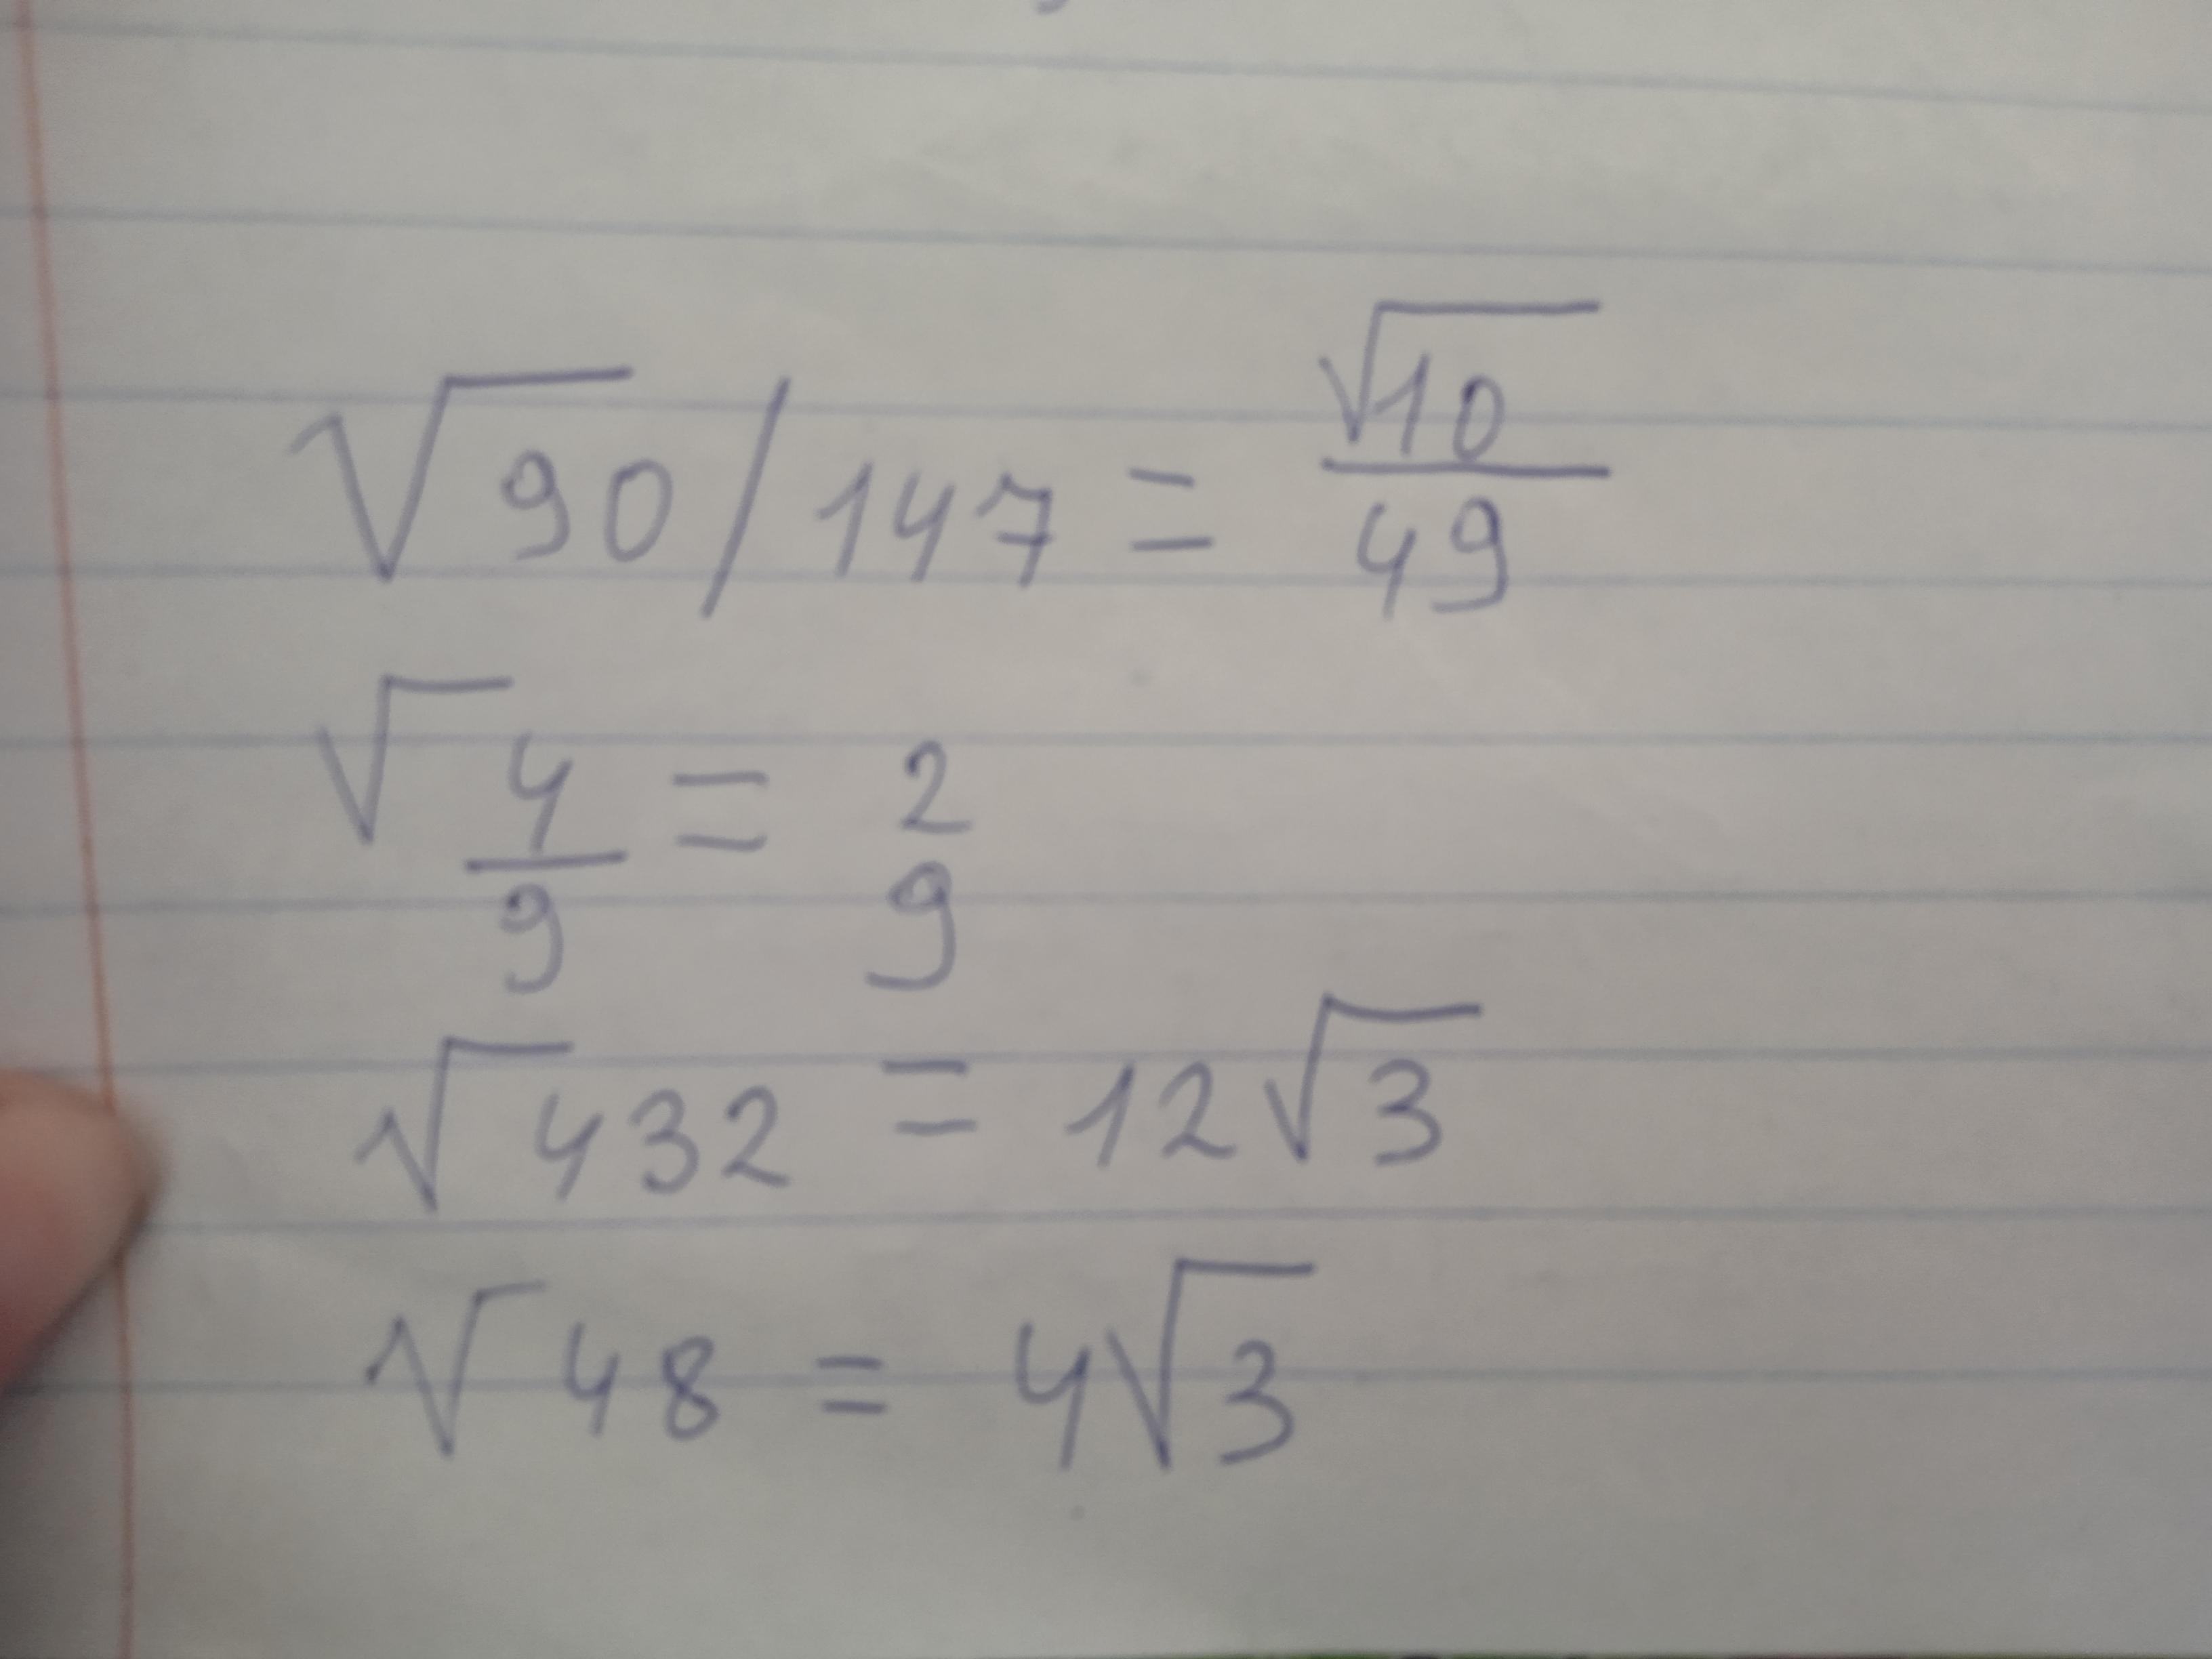 √90/147 = √10/49
√4/9 = 2 9
√432 = 12√3
√48 = 4√3